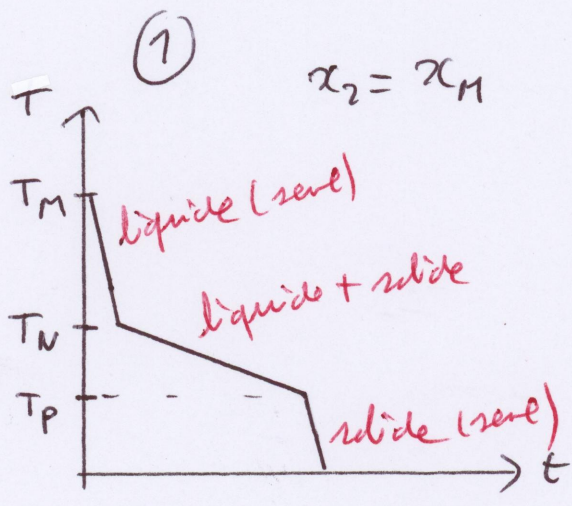 1
x₂ = x_M
T
T_M
liquide (seul)
liquide + solide
T_N
T_P
solide (seul)
t